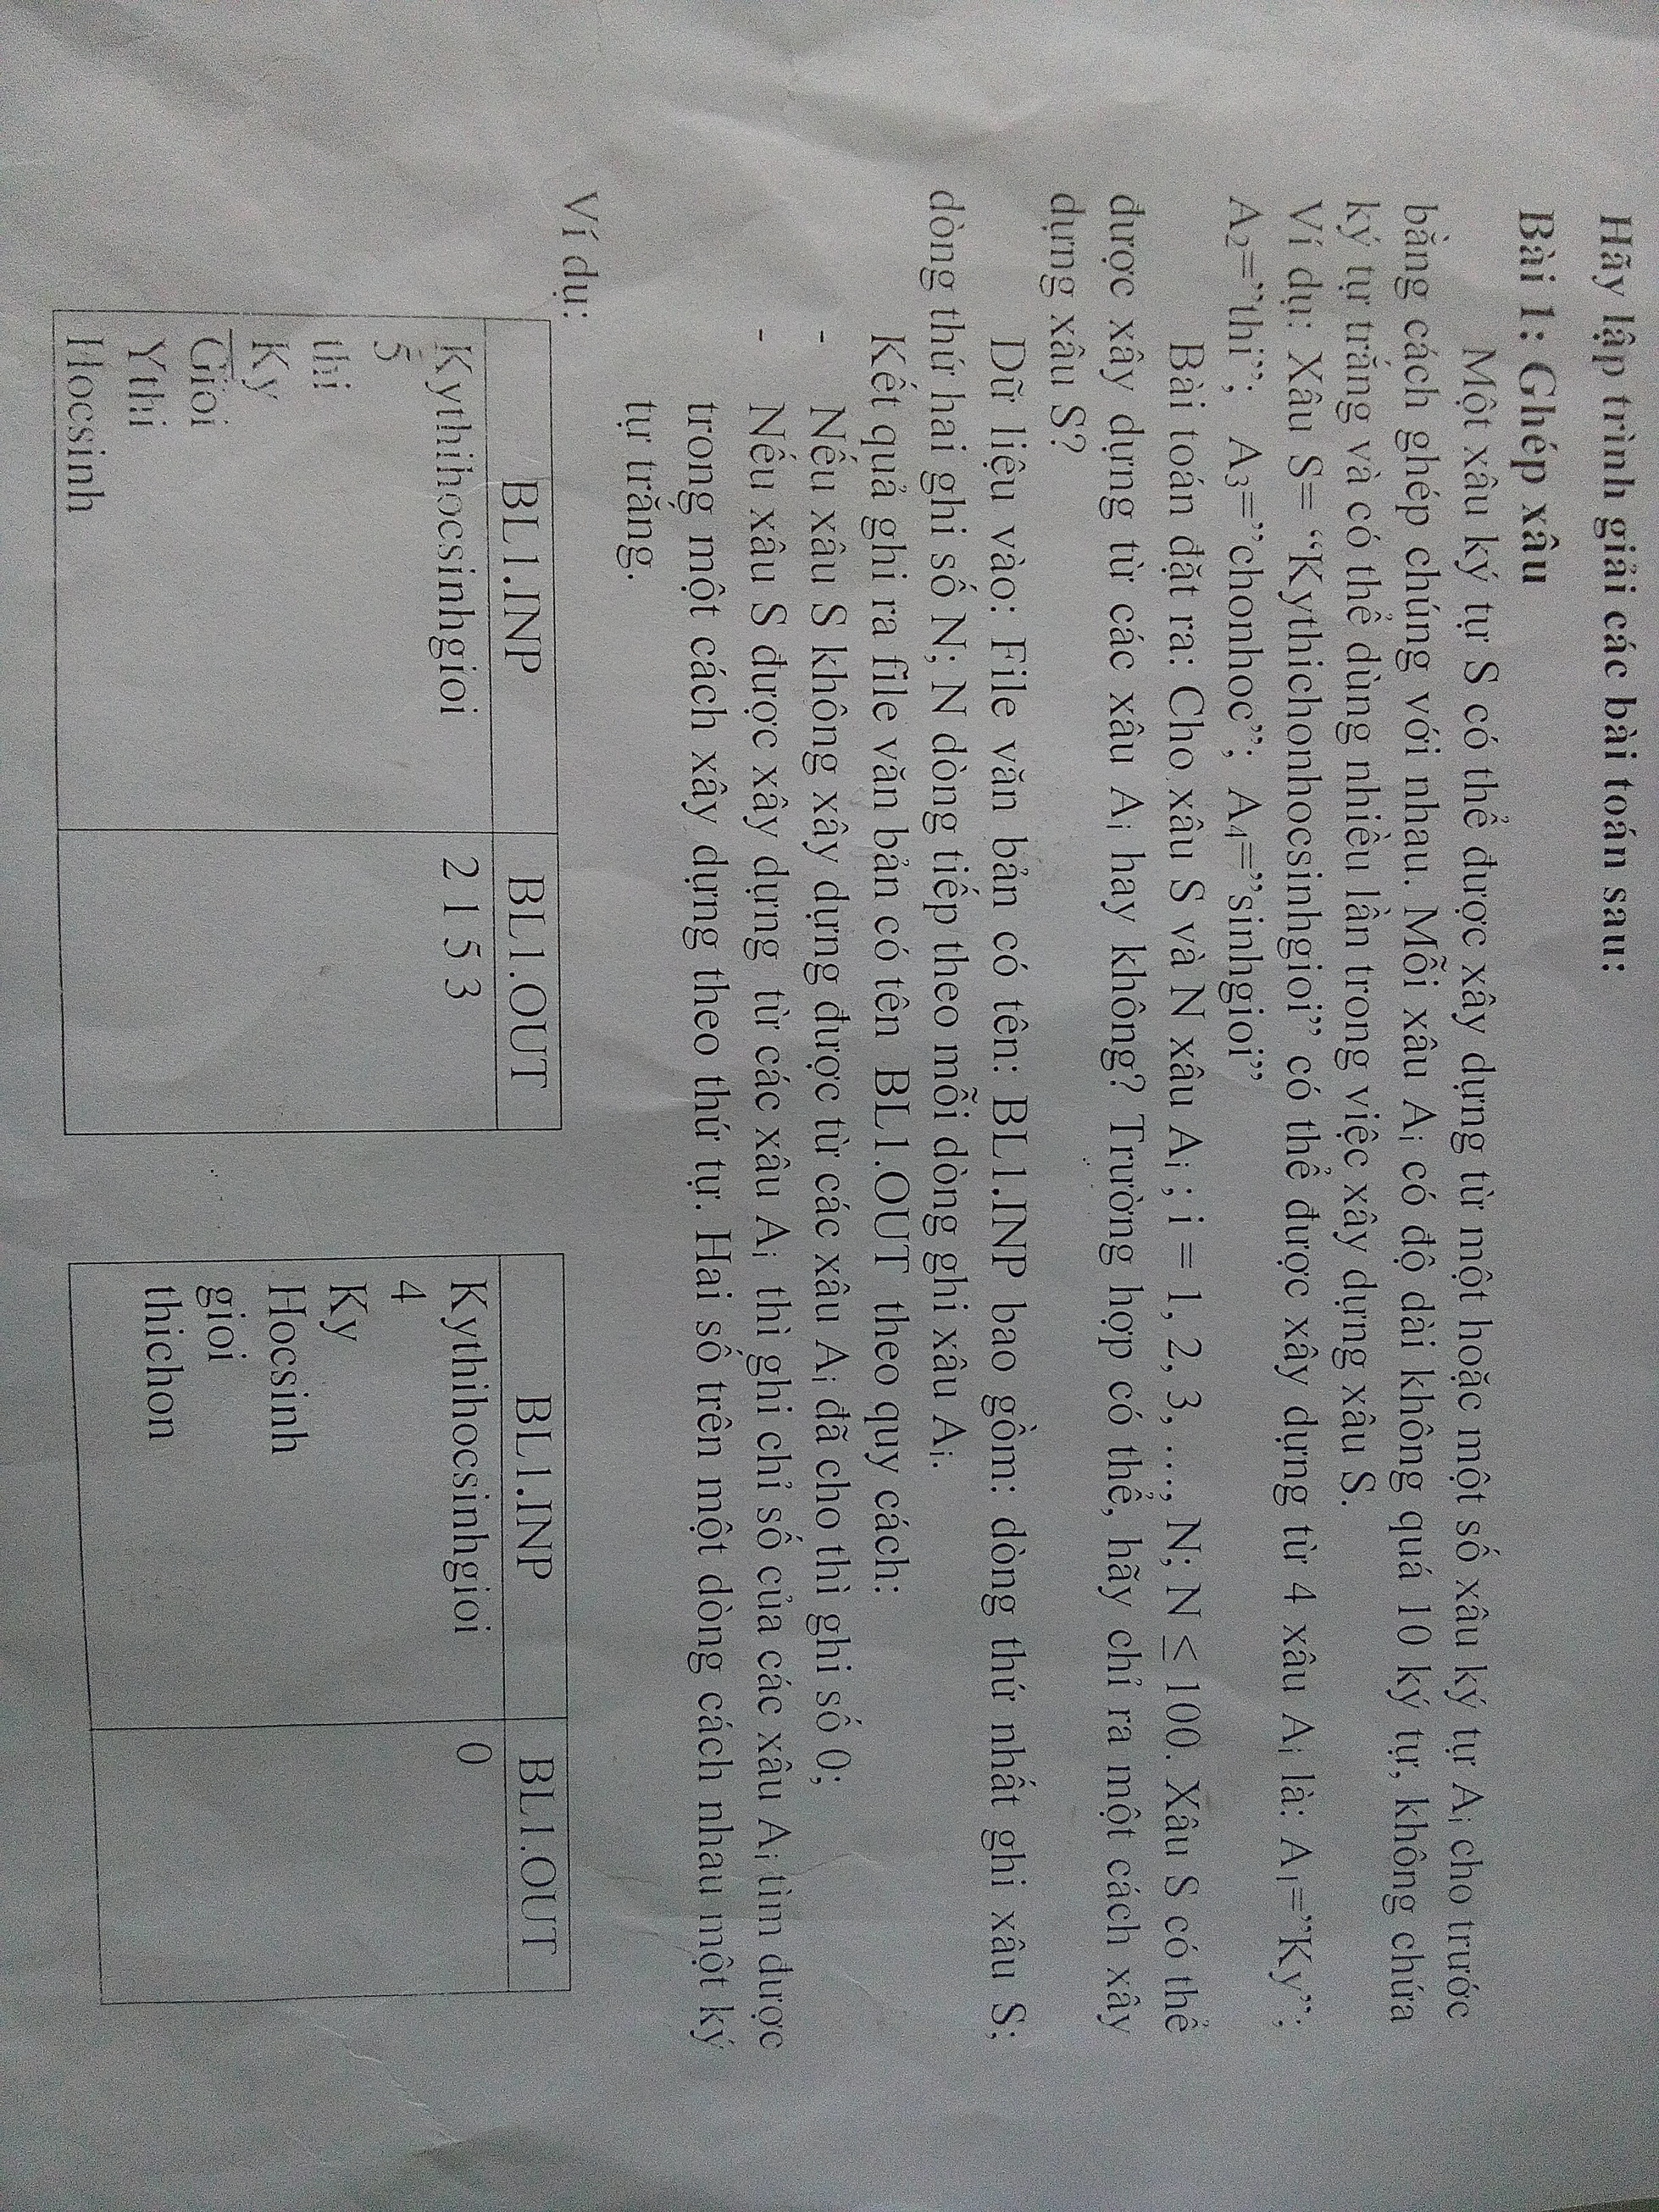 Hãy lập trình giải các bài toán sau:
Bài 1: Ghép xâu
Một xâu ký tự S có thể được xây dựng từ một hoặc một số xâu ký tự Ai cho trước
bằng cách ghép chúng với nhau. Mỗi xâu Ai có độ dài không quá 10 ký tự, không chứa
ký tự trắng và có thể dùng nhiều lần trong việc xây dựng xâu S.
Ví dụ: Xâu S= “Kythichonhocsinhgioi” có thể được xây dựng từ 4 xâu Ai là: A1=”Ky”;
A2=”thi”; A3=”chonhoc”; A4=”sinhgioi”
Bài toán đặt ra: Cho xâu S và N xâu Ai ; i = 1, 2, 3, …, N; N ≤ 100. Xâu S có thể
được xây dựng từ các xâu Ai hay không? Trường hợp có thể, hãy chỉ ra một cách xây
dựng xâu S?
Dữ liệu vào: File văn bản có tên: BL1.INP bao gồm: dòng thứ nhất ghi xâu S;
dòng thứ hai ghi số N; N dòng tiếp theo mỗi dòng ghi xâu Ai.
Kết quả ghi ra file văn bản có tên BL1.OUT theo quy cách:
- Nếu xâu S không xây dựng được từ các xâu Ai đã cho thì ghi số 0;
- Nếu xâu S được xây dựng từ các xâu Ai thì ghi chỉ số của các xâu Ai tìm được
trong một cách xây dựng theo thứ tự. Hai số trên một dòng cách nhau một ký
tự trắng.
Ví dụ:
BL1.INP BL1.OUT
Kythihocsinhgioi 2 1 5 3
5
thi
Ky
Gioi
Ythi
Hocsinh
BL1.INP BL1.OUT
Kythihocsinhgioi 0
4
Ky
Hocsinh
gioi
thichon